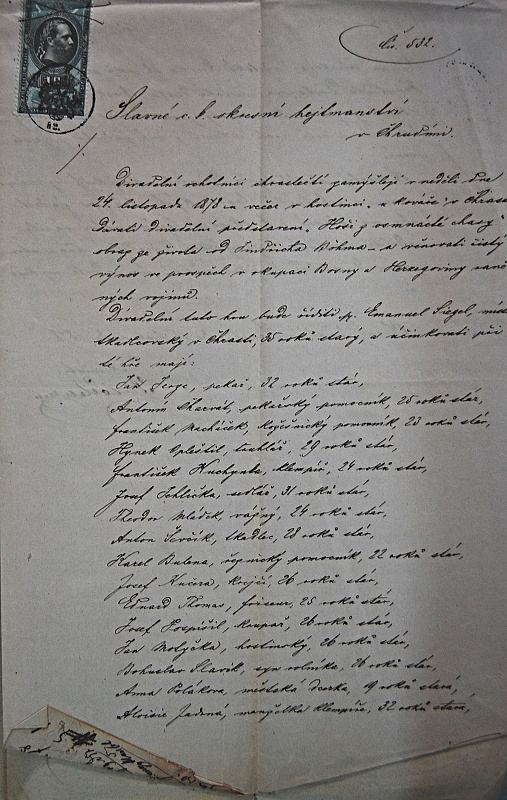 čís. 532.
Slavné c. k. okresní hejtmanství
v Chrudimi.
Divadelní ochotníci chrastečtí pomýšlejí v neděli dne
24. listopadu 1878 večer v hostinci u kováře v Chrasti
dávati divadelní představení, Hoši z osmnácté chasy
obraz ze života od Jindřicha Böhma a věnovati čistý
výnos ve prospěch v okupaci Bosny a Herzegoviny raně-
ných vojínů.
Divadelní tuto hru bude říditi p. Emanuel Siegel, mistr
tkadlcovský v Chrasti, 35 roků starý, a účinkovati při
té hře mají:
Jan Jorge, pekař, 32 roků stár,
Antonín Charvát, pekařský pomocník, 25 roků stár,
František Macháček, pomocník, 23 roků stár,
Hynek Opleštil, truhlář, 29 roků stár,
František Kuchynka, klempíř, 24 roků stár,
Josef Jehlička, sedlář, 31 roků stár,
Theodor Mládek, vážný, 24 roků stár,
Anton Ševčík, tkadlec, 28 roků stár,
Karel Bulena, řeznický pomocník, 22 roků stár,
Josef Kučera, krejčí, 26 roků stár,
Eduard Thomas, friseur, 25 roků stár,
Josef Pospíšil, krupař, 26 roků stár,
Jan Motyčka, hostinský, 26 roků stár,
Bohuslav Slavík, syn rolníka, 26 roků stár,
Anna Poláková, městská dcerka, 9 roků stará,
Aloisie Jadrná, manželka klempíře, 32 roků stará,